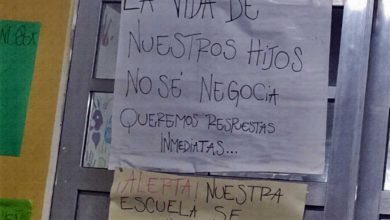 LA VIDA DE
NUESTROS HIJOS
NO SÉ NEGOCIA
QUEREMOS RESPUESTAS
INMEDIATAS...
¡ALERTA! NUESTRA
ESCUELA SE